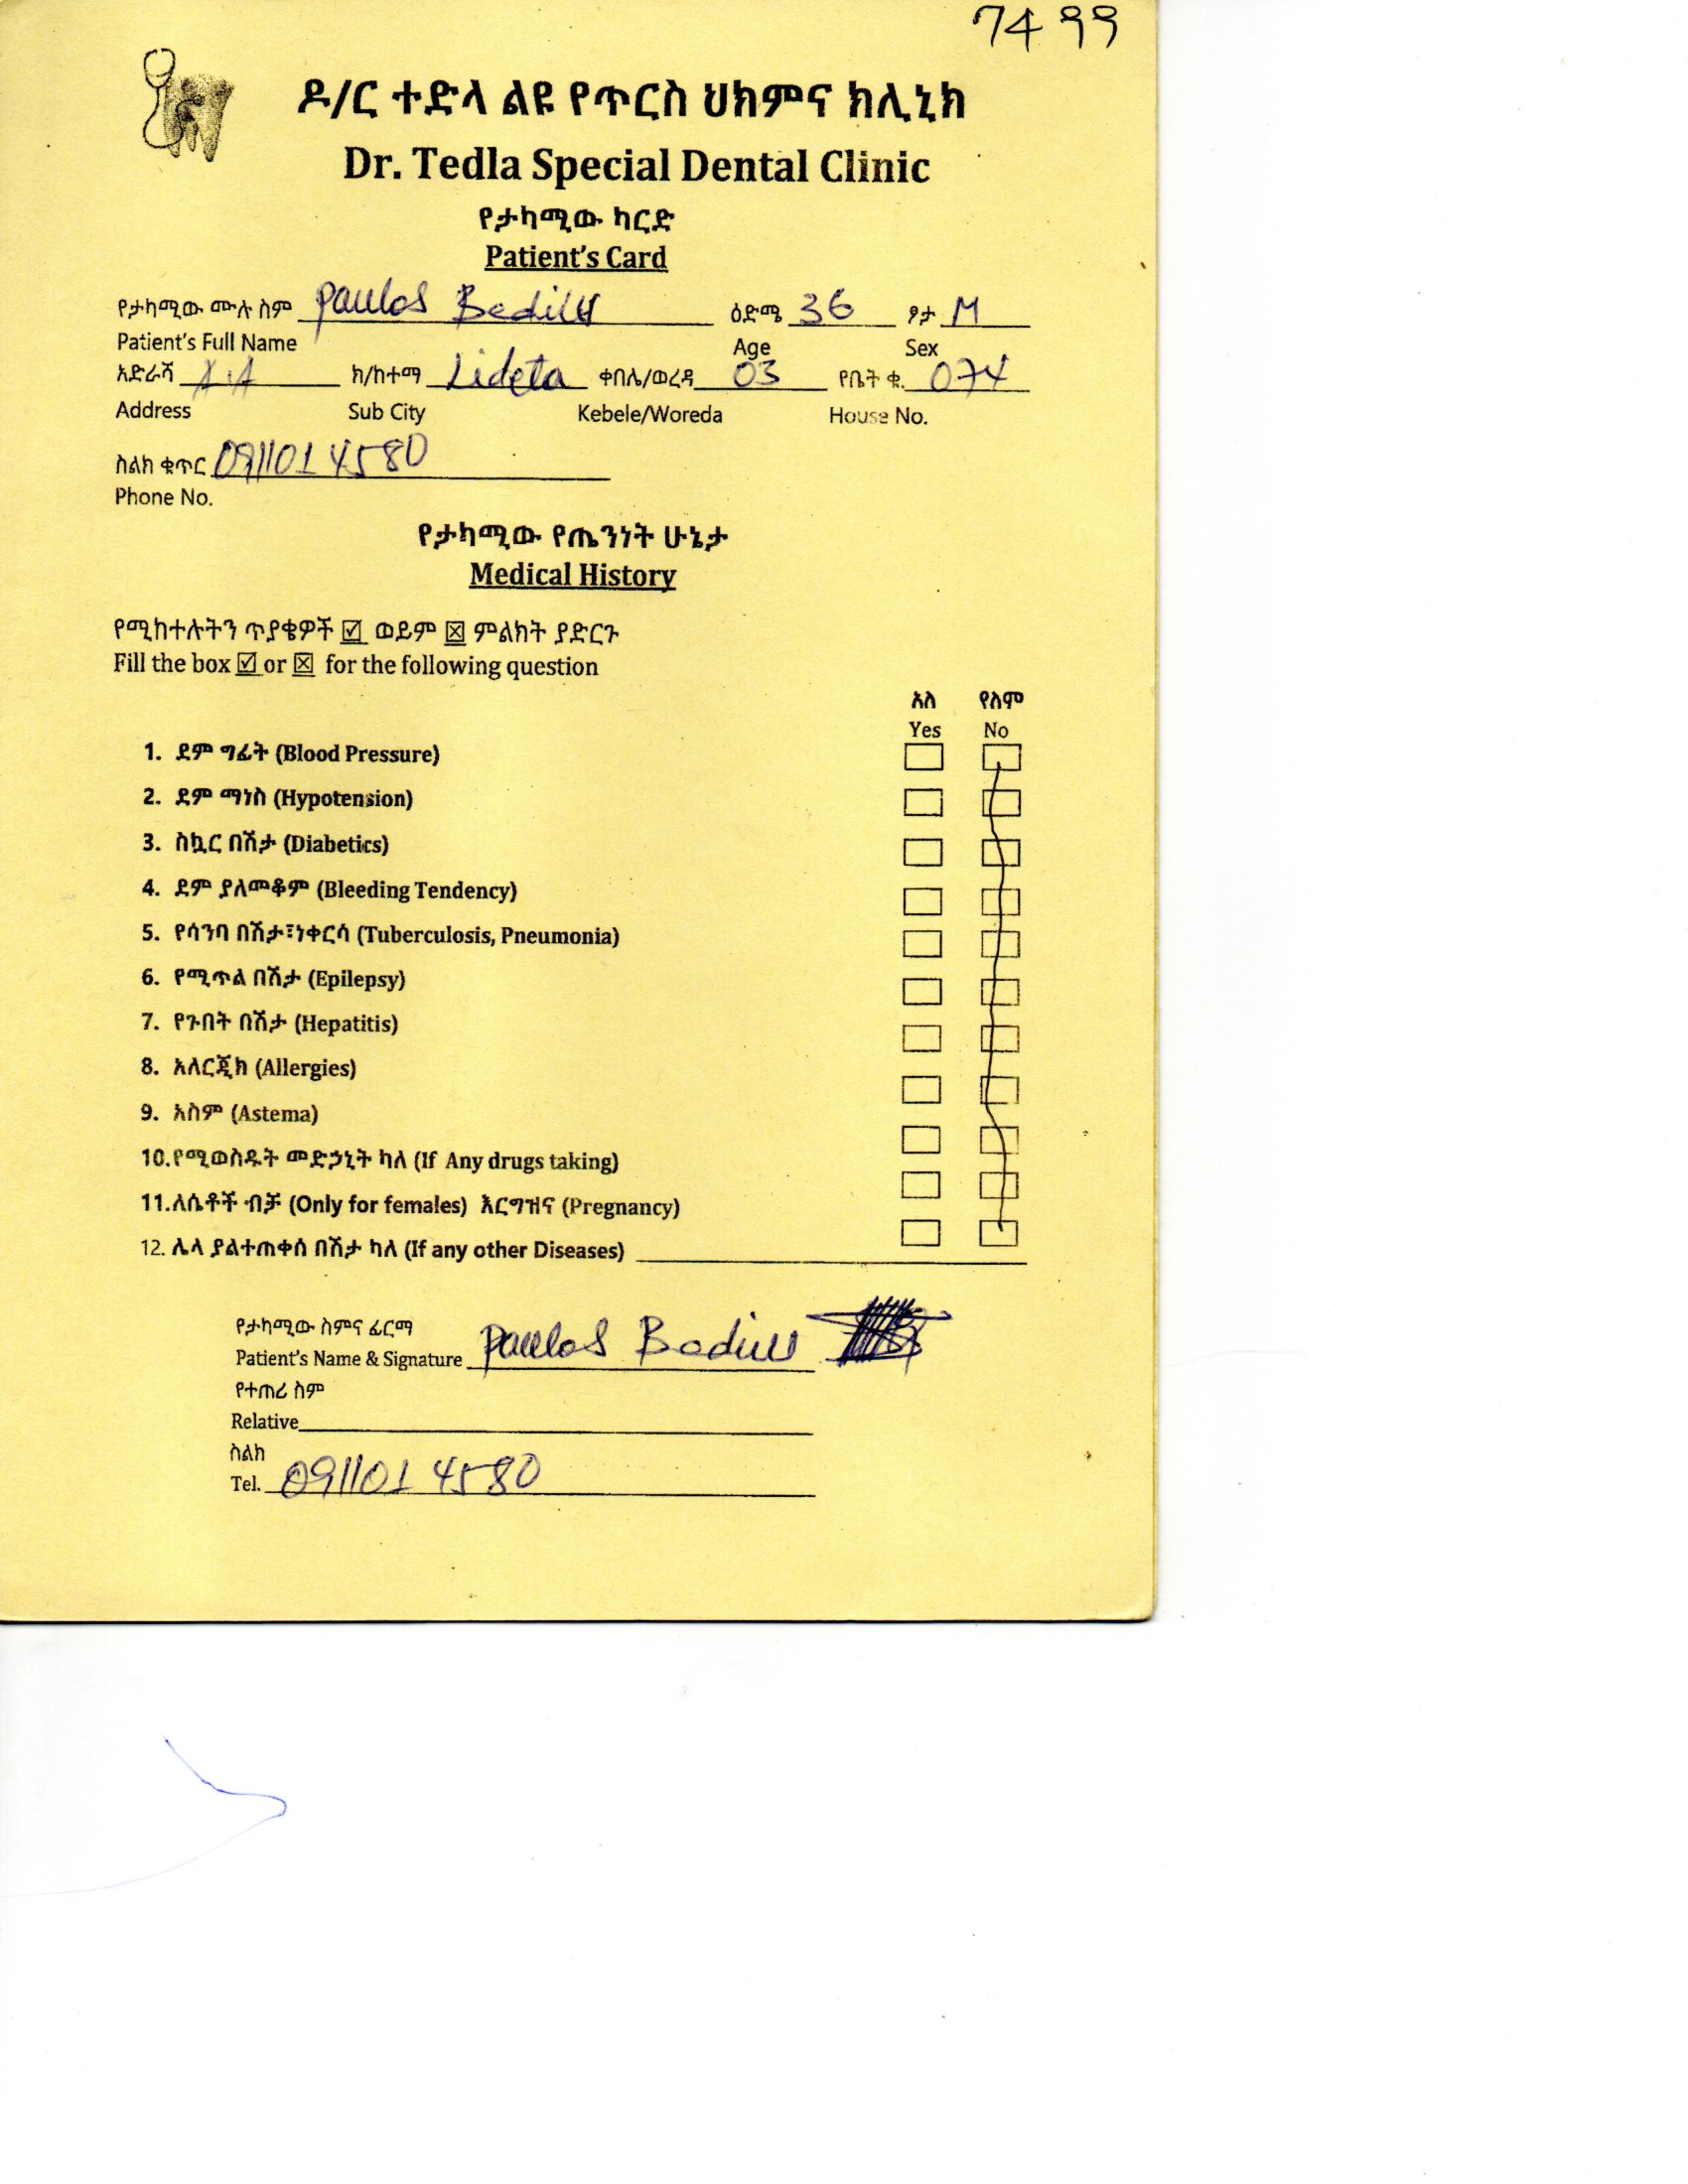 7499
ዶ/ር ተድላ ልዩ የጥርስ ህክምና ክሊኒክ
Dr. Tedla Special Dental Clinic
የታካሚው ካርድ
Patient's Card
የታካሚው ሙሉ ስም Paulos Bedilu ዕድሜ 36 ፆታ M
Patient's Full Name Age Sex
አድራሻ A.A ክ/ከተማ Lideta ቀበሌ/ወረዳ 03 የቤት ቁ. 074
Address Sub City Kebele/Woreda House No.
ስልክ ቁጥር 0911014580
Phone No.
የታካሚው የጤንነት ሁኔታ
Medical History
የሚከተሉትን ጥያቄዎች ☑ ወይም ☒ ምልክት ያድርጉ
Fill the box ☑ or ☒ for the following question
አለ የለም
Yes No
1. ደም ግፊት (Blood Pressure)
2. ደም ማነስ (Hypotension)
3. ስኳር በሽታ (Diabetics)
4. ደም ያለመቆም (Bleeding Tendency)
5. የሳንባ በሽታ፣ነቀርሳ (Tuberculosis, Pneumonia)
6. የሚጥል በሽታ (Epilepsy)
7. የጉበት በሽታ (Hepatitis)
8. አለርጂክ (Allergies)
9. አስም (Astema)
10.የሚወስዱት መድኃኒት ካለ (If Any drugs taking)
11.ለሴቶች ብቻ (Only for females) እርግዝና (Pregnancy)
12. ሌላ ያልተጠቀሰ በሽታ ካለ (If any other Diseases)
የታካሚው ስምና ፊርማ
Patient's Name & Signature Paulos Bedilu
የተጠሪ ስም
Relative
ስልክ
Tel. 0911014580